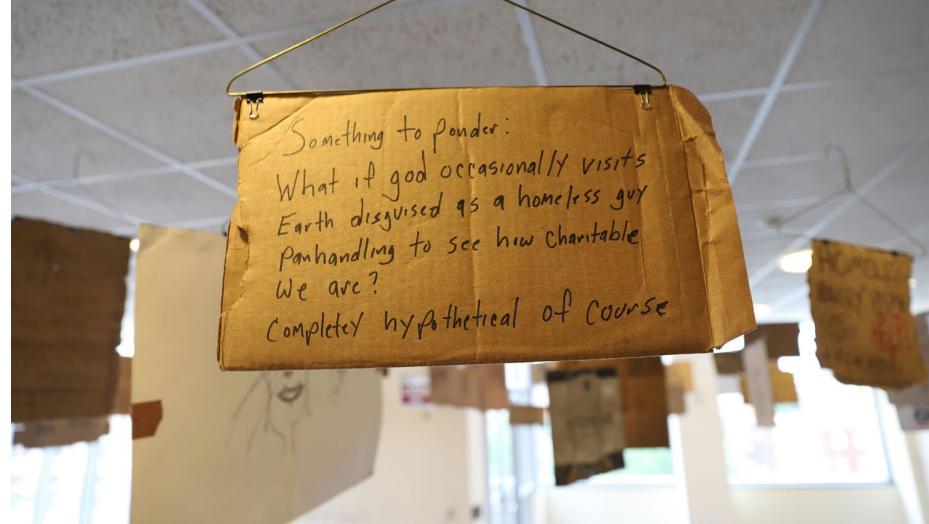 Something to ponder:
What if god occasionally visits
Earth disguised as a homeless guy
panhandling to see how charitable
we are?
Completely hypothetical of course
HOMELESS